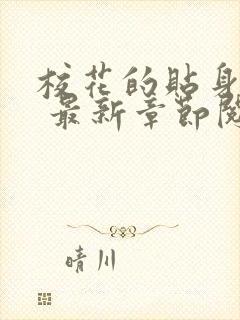 校花的贴身
最新章节阅
晴川